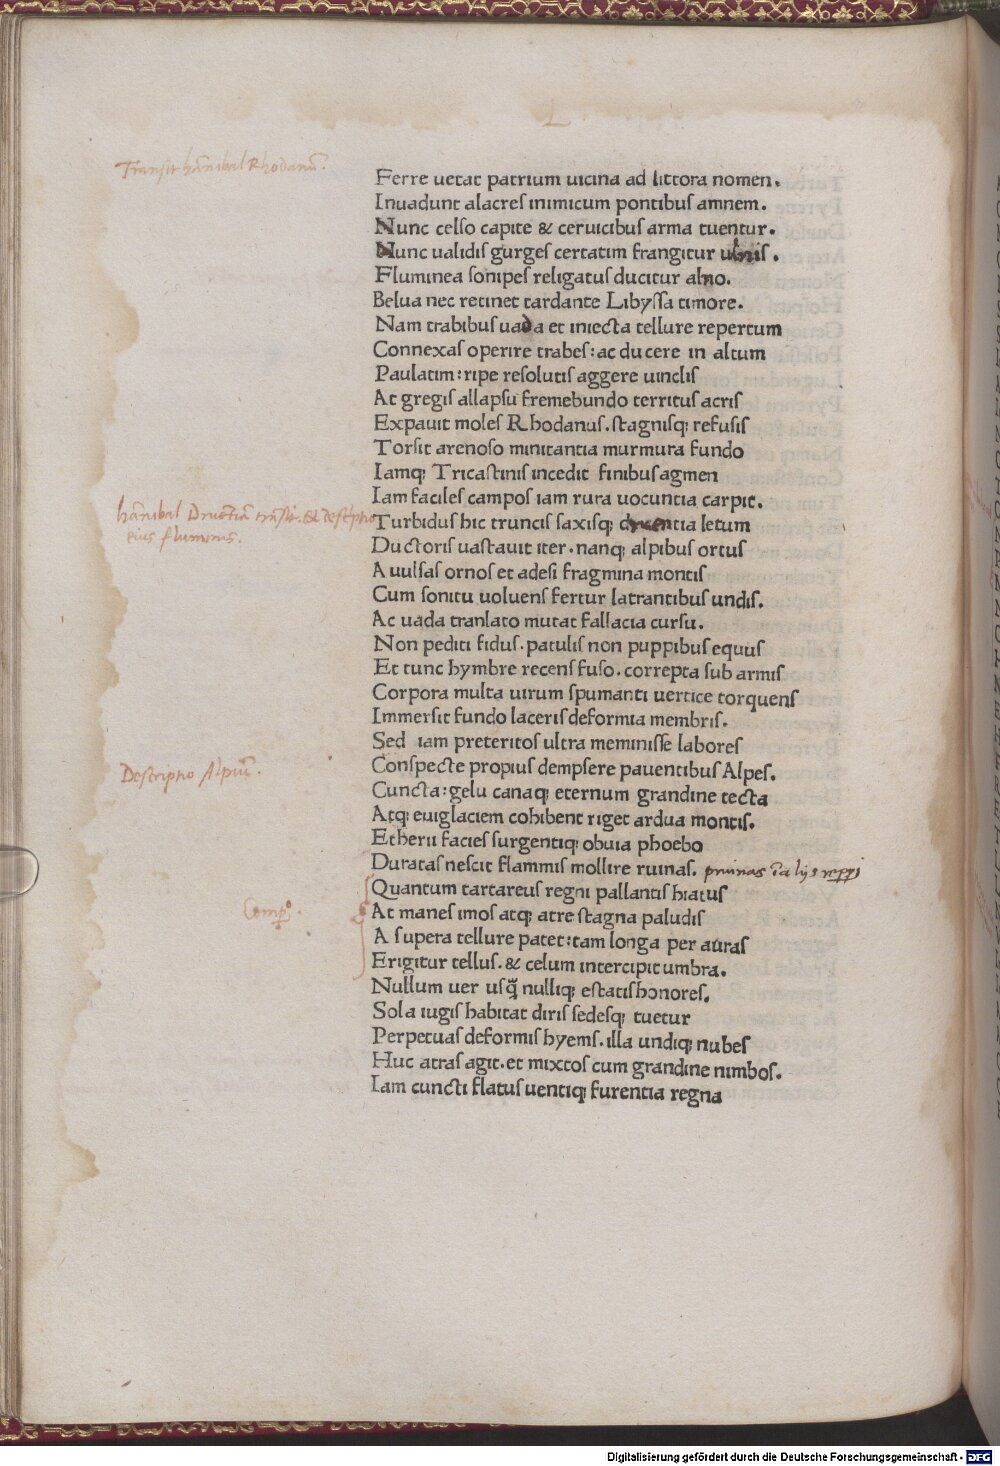 L
Transit hānibal Rhodanū.
Ferre uetat patrium uicina ad littora nomen.
Inuadunt alacres inimicum pontibus amnem.
Nunc celso capite & ceruicibus arma tuentur.
Nunc ualidis gurges certatim frangitur ulnis.
Fluminea sonipes religatus ducitur alno.
Belua nec retinet tardante Libyssa timore.
Nam trabibus uada et iniecta tellure repertum
Connexas operire trabes: ac ducere in altum
Paulatim: ripe resolutis aggere uinclis
At gregis allapsu fremebundo territus acris
Expauit moles Rhodanus. stagnisq; refusis
Torsit arenoso minitantia murmura fundo
Iamq; Tricastinis incedit finibus agmen
Iam faciles campos iam rura uocuntia carpit.
hānibal Druētiā transit. & descriptio
eius fluminis.
Turbidus hic truncis saxisq; druentia letum
Ductoris uastauit iter. nanq; alpibus ortus
Auulsas ornos et adesi fragmina montis
Cum sonitu uoluens fertur latrantibus undis.
Ac uada tranlato mutat fallacia cursu.
Non pediti fidus. patulis non puppibus equus
Et tunc hymbre recens fuso. correpta sub armis
Corpora multa uirum spumanti uertice torquens
Immersit fundo laceris deformia membris.
Sed iam preteritos ultra meminisse labores
Descriptio Alpiū.
Conspecte propius dempsere pauentibus Alpes.
Cuncta: gelu canaq; eternum grandine tecta
Atq; euiglaciem cohibent riget ardua montis.
Etherii facies surgentiq; obuia phoebo
Duratas nescit flammis mollire ruinas. pruinas
Quantum tartareus regni pallantis hiatus
At manes imos atq; atre stagna paludis
A supera tellure patet: tam longa per auras
Erigitur tellus. & celum intercipit umbra.
Nullum uer usq̄ nulliq; estatis honores.
Sola iugis habitat diris sedesq; tuetur
Perpetuas deformis hyems. illa undiq; nubes
Huc atras agit. et mixtos cum grandine nimbos.
Iam cuncti flatus uentiq; furentia regna
Digitalisierung gefördert durch die Deutsche Forschungsgemeinschaft - DFG